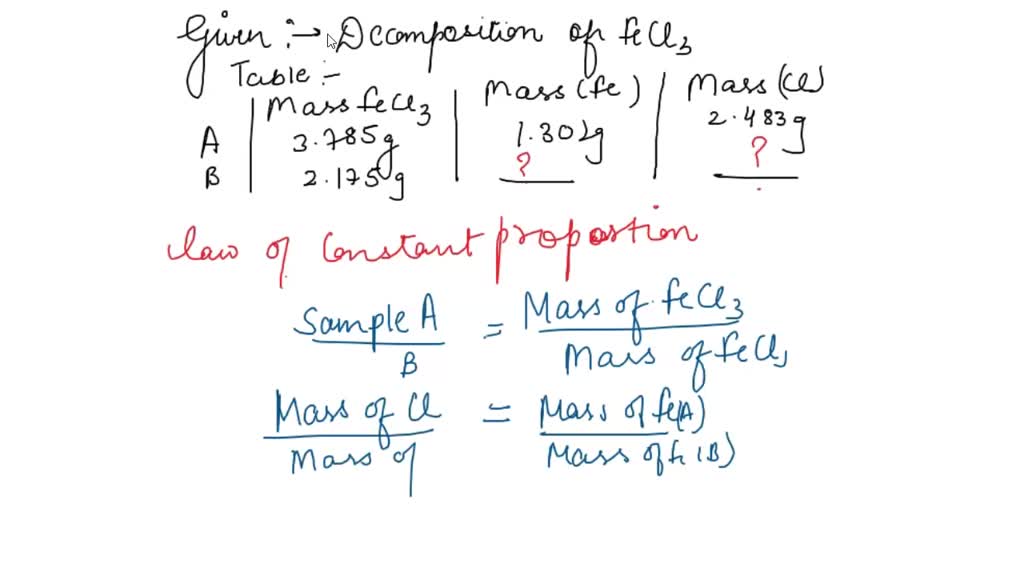 Given :→ Dcomposition of FeCl3
Table :-
Mass FeCl3 Mass (Fe) Mass (Cl)
A 3.785g 1.302g 2.483g
B 2.175g ? ?
law of Constant proportion
Sample A / B = Mass of FeCl3 / Mass of FeCl3
Mass of Cl / Mass of = Mass of Fe(A) / Mass of Fe (B)